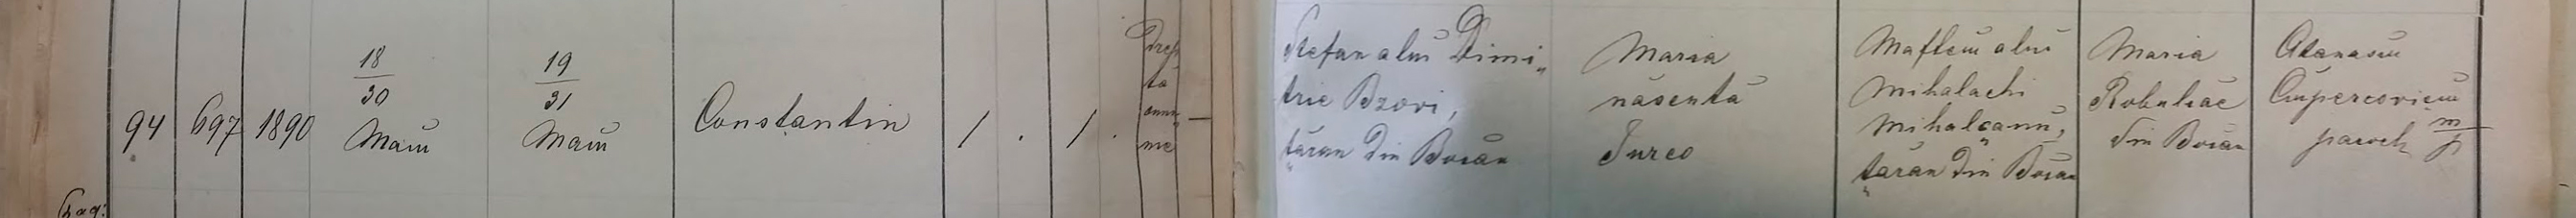 94
697
1890
18
30
Maiŭ
19
31
Maiŭ
Constantin
1
.
1
.
Drep
ta
anu„
me
—
Stefan alui Dimi„
trie Bzovi,
țaran din Boian
Maria
născută
Iurco
Mafteiŭ alui
Mihalachi
Mihaleanŭ,
țaran din Boian
Maria
din Boian
Atanasiu
paroch m/p